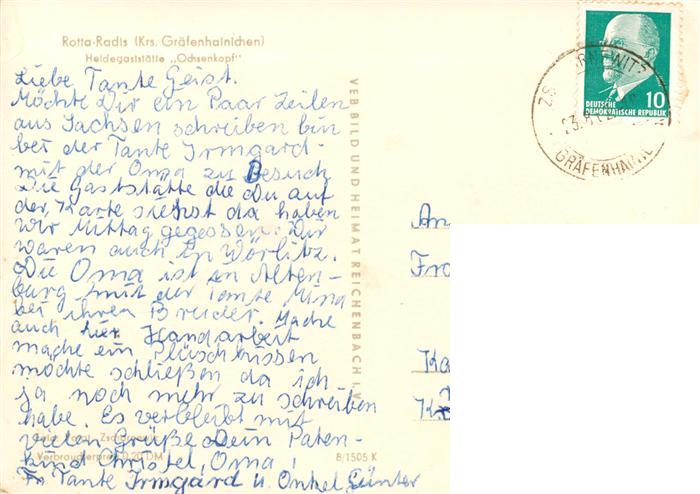 Rotta-Radis (Krs. Gräfenhainichen)
Heidegaststätte „Ochsenkopf"
Liebe Tante Geist.
Möchte Dir ein Paar Zeilen
aus Sachsen schreiben bin
bei der Tante Irmgard
mit der Oma zu Besuch
Die Gaststätte die Du auf
der Karte siehst da haben
wir Mittag gegessen. Wir
waren auch in Wörlitz.
Die Oma ist in Alten-
burg mit der Tante Mina
bei ihren Bruder. Mache
auch hier Handarbeit
mache ein Plüschkissen
möchte schließen da ich
ja noch mehr zu schreiben
habe. Es verbleibt mit
vielen Grüße Dein Paten-
kind Christel, Oma,
Tante Irmgard u. Onkel Günter
Verbraucherpreis 0,20 DM
8/1505 K
VEB BILD UND HEIMAT REICHENBACH I. V.
DEUTSCHE
DEMOKRATISCHE REPUBLIK
10
GRÄFENHAINI
An
Fr
Ka